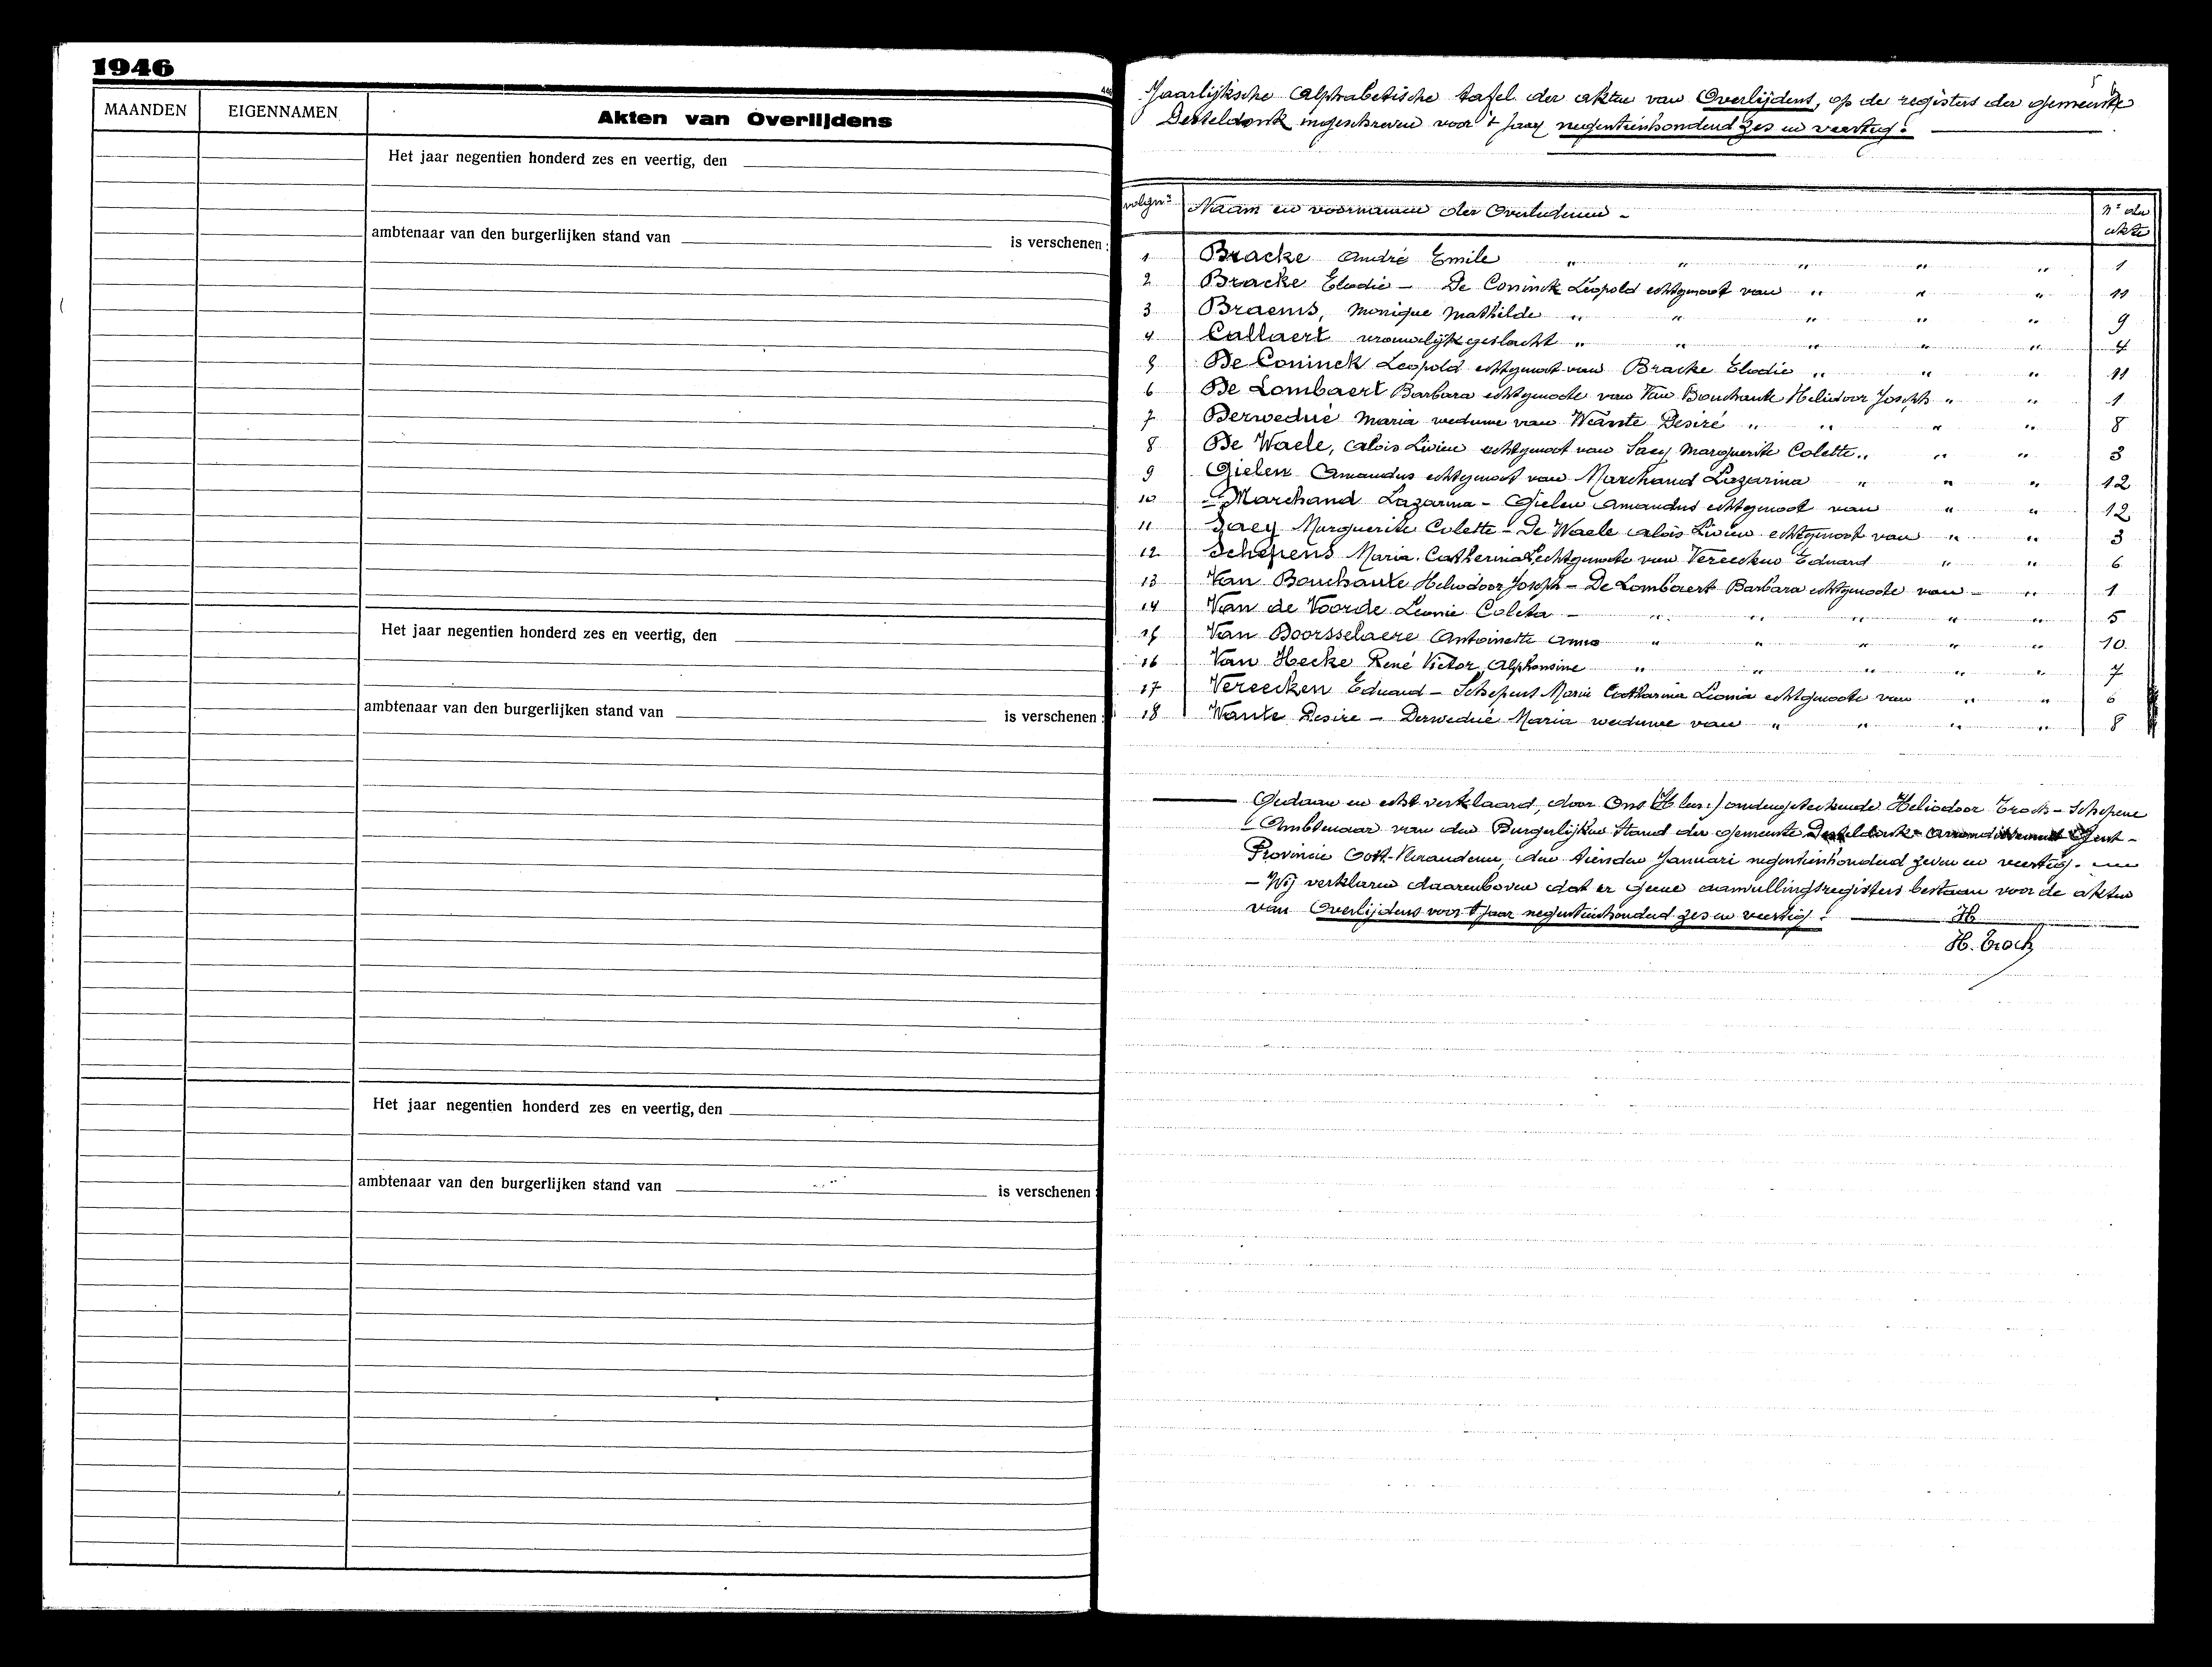 1946
MAANDEN
EIGENNAMEN
Akten van Overlijdens
Het jaar negentien honderd zes en veertig, den
ambtenaar van den burgerlijken stand van is verschenen:
Het jaar negentien honderd zes en veertig, den
ambtenaar van den burgerlijken stand van is verschenen:
Het jaar negentien honderd zes en veertig, den
ambtenaar van den burgerlijken stand van is verschenen:
Jaarlijksche Alphabetische tafel der akten van Overlijdens, op de registers der gemeente
Desteldonk ingeschreven voor 't jaar negentienhonderd zes en veertig.
volgnr Naam en voornamen der Overledenen - Nr der akte
1 Bracke André Emile " " " " " 1
2 Bracke Elodie - De Coninck Leopold echtgenoot van " " " 11
3 Braems, Monique Mathilde " " " " " 9
4 Callaert vrouwelijk geslacht " " " " " 4
5 De Coninck Leopold echtgenoot van Bracke Elodie " " " 11
6 De Lombaert Barbara echtgenoote van Van Bouchaute Heliodoor Joseph " " 1
7 Derweduë Maria weduwe van Wante Desiré " " " " 8
8 De Waele, Aloïs Livien echtgenoot van Saey Marguerite Colette " " " 3
9 Gielen Amandus echtgenoot van Marchand Lazarina " " " 12
10 Marchand Lazarina - Gielen Amandus echtgenoot van " " 12
11 Saey Marguerite Colette - De Waele Aloïs Livien echtgenoot van " " 3
12 Schepens Maria Catherina L. echtgenoote van Vereecken Eduard " " 6
13 Van Bouchaute Heliodoor Joseph - De Lombaert Barbara echtgenoote van - " 1
14 Van de Voorde Leonie Coleta - " " " " " 5
15 Van Doorsselaere Antoinette Anna " " " " " 10
16 Van Hecke René Victor Alphonsine " " " " " 7
17 Vereecken Eduard - Schepens Maria Catharina Leonia echtgenoote van " " 6
18 Wante Desire - Derweduë Maria weduwe van " " " " 8
Gedaan en echt verklaard, door Ons ondergeteekende Heliodoor Troch - Schepene
Ambtenaar van den Burgerlijken Stand der gemeente Desteldonk - Arrondissement Gent -
Provincie Oost-Vlaanderen, den tienden Januari negentienhonderd zeven en veertig.
- Wij verklaren daarenboven dat er geene aanvullingsregisters bestaan voor de akten
van Overlijdens voor 't jaar negentienhonderd zes en veertig.
H. Troch